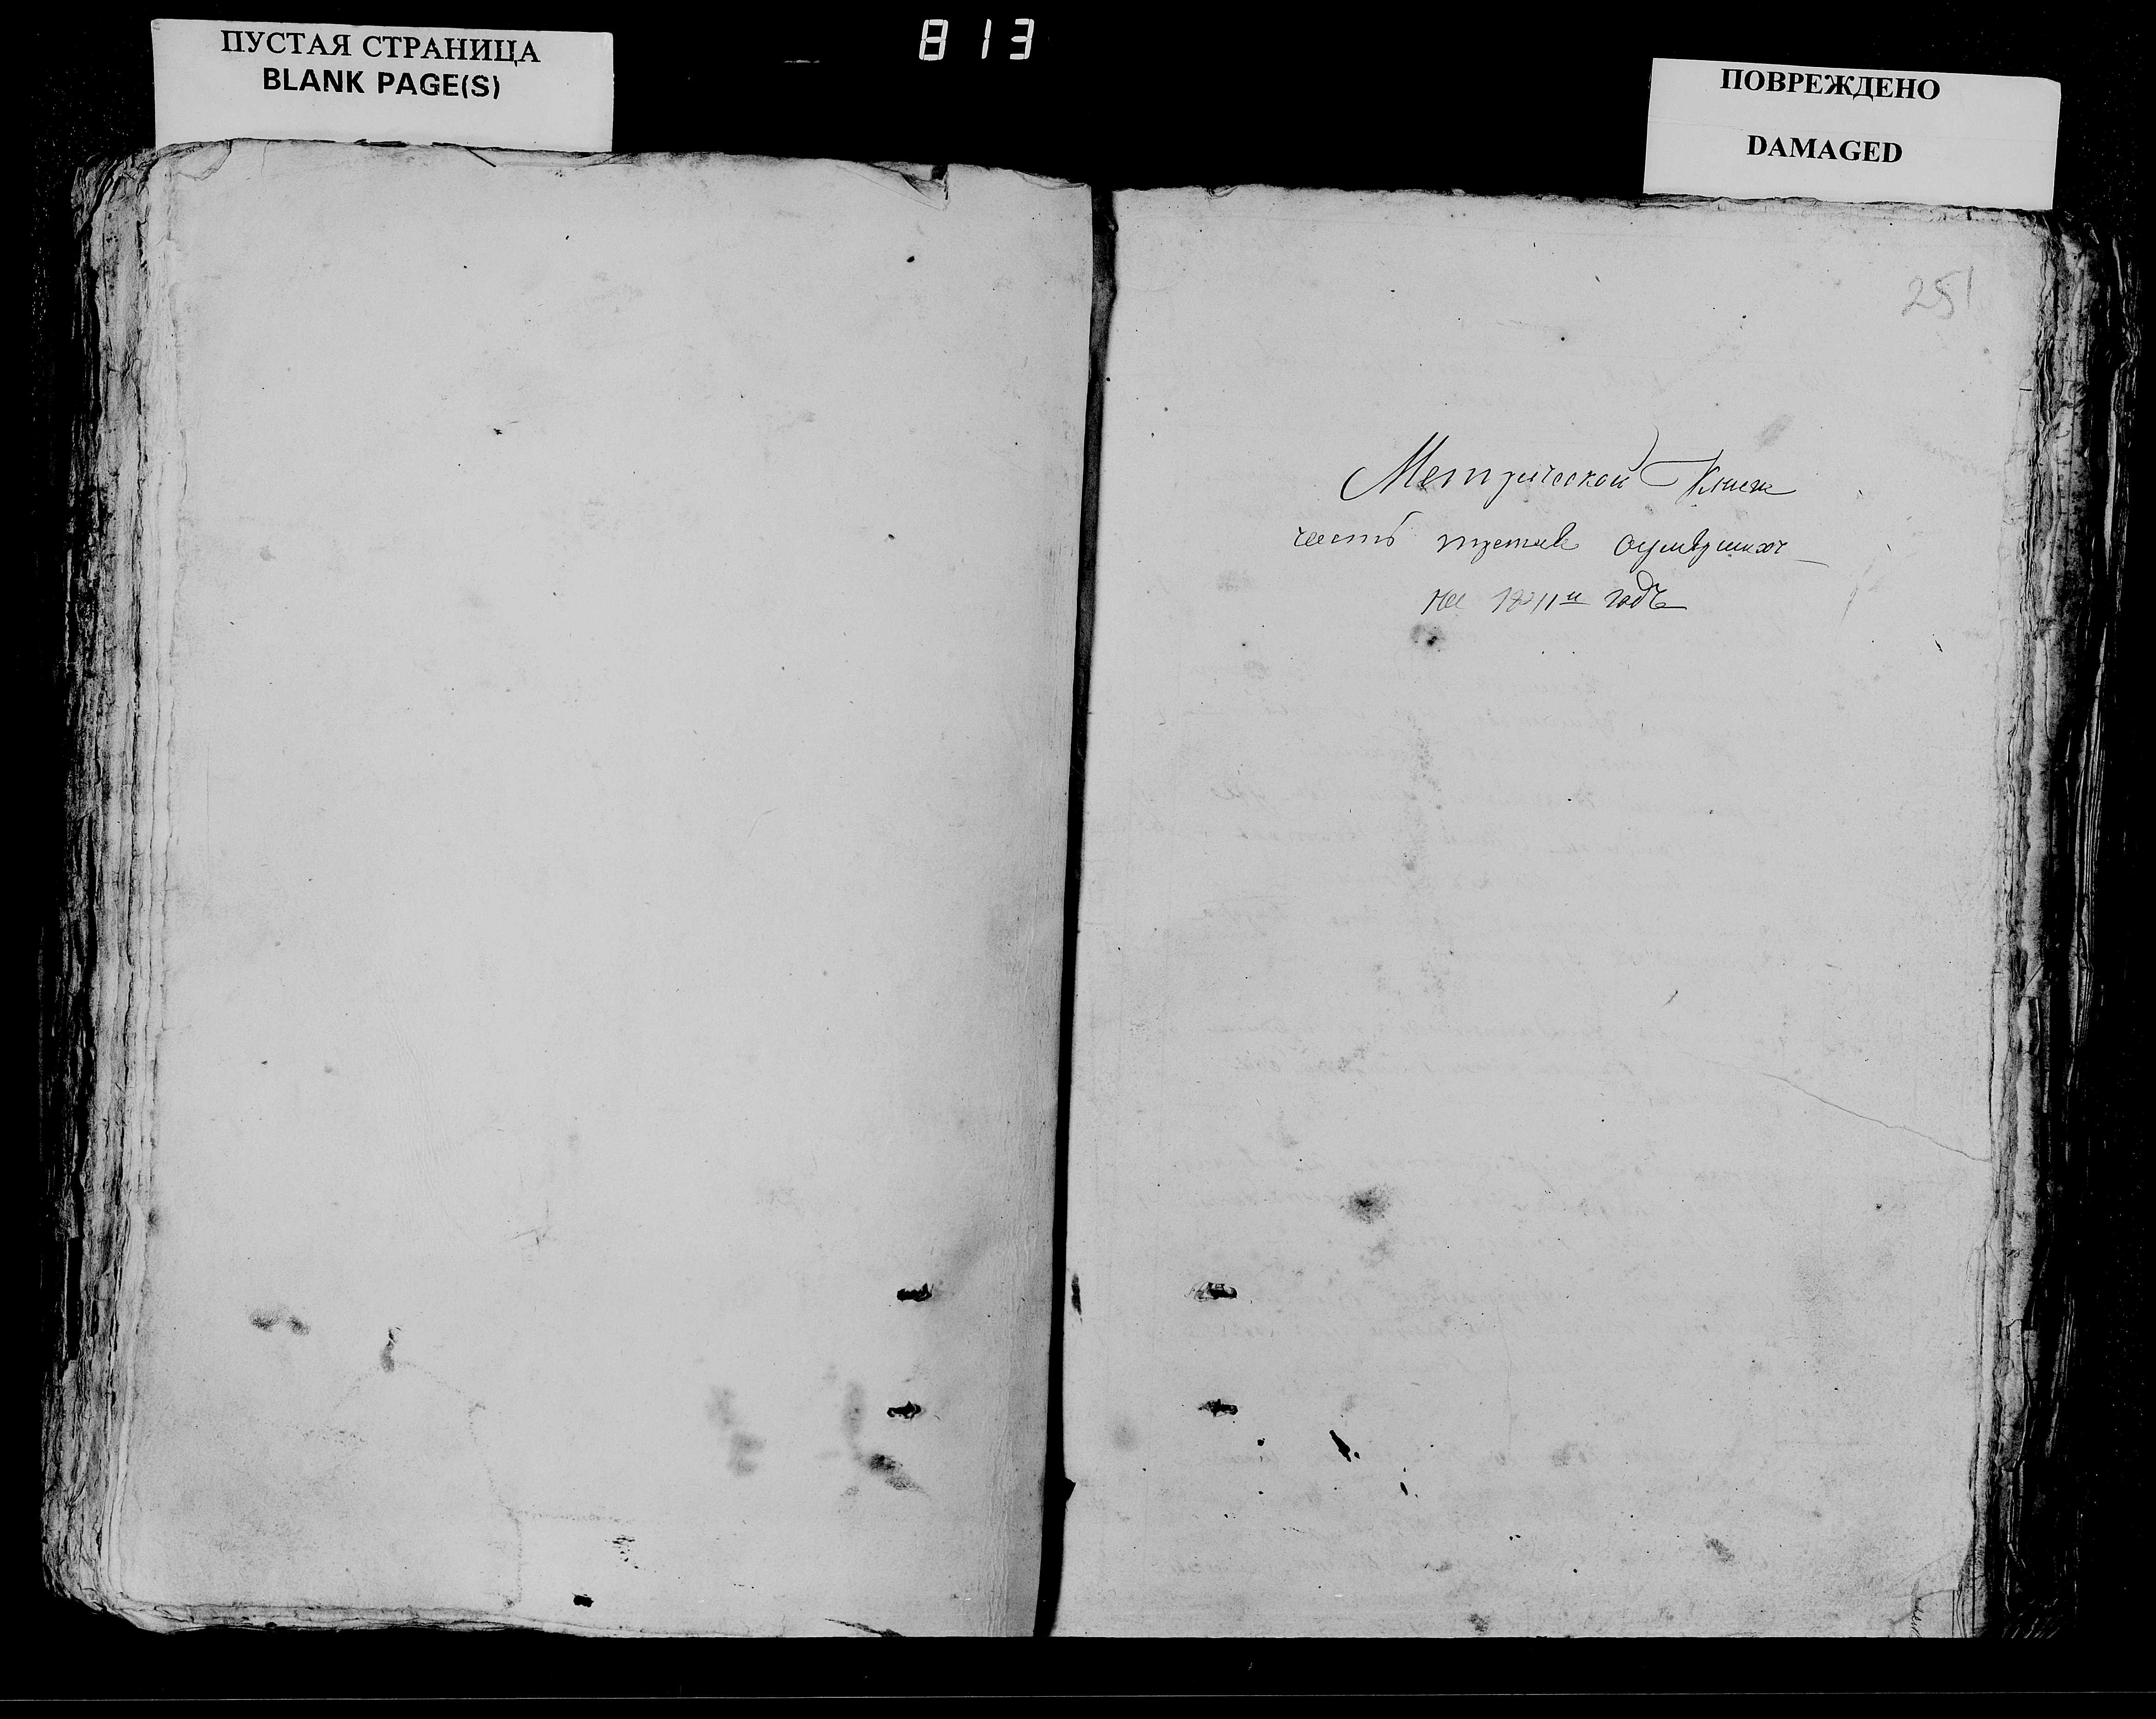 ПУСТАЯ СТРАНИЦА
BLANK PAGE(S)
813
ПОВРЕЖДЕНО
DAMAGED
251
Метрической Книги
часть третья оумершихъ
на годъ